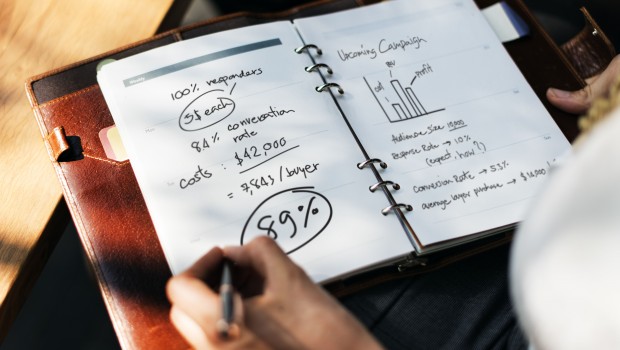 100% responders
$1 each
84% conversation
rate
costs : $42,000
= 7,843/buyer
89%
Upcoming Campaign
roi
profit
Audience Size 10,000
Response Rate → 10%
(expect, how?)
Conversion Rate → 5.3%
average buyer purchase →